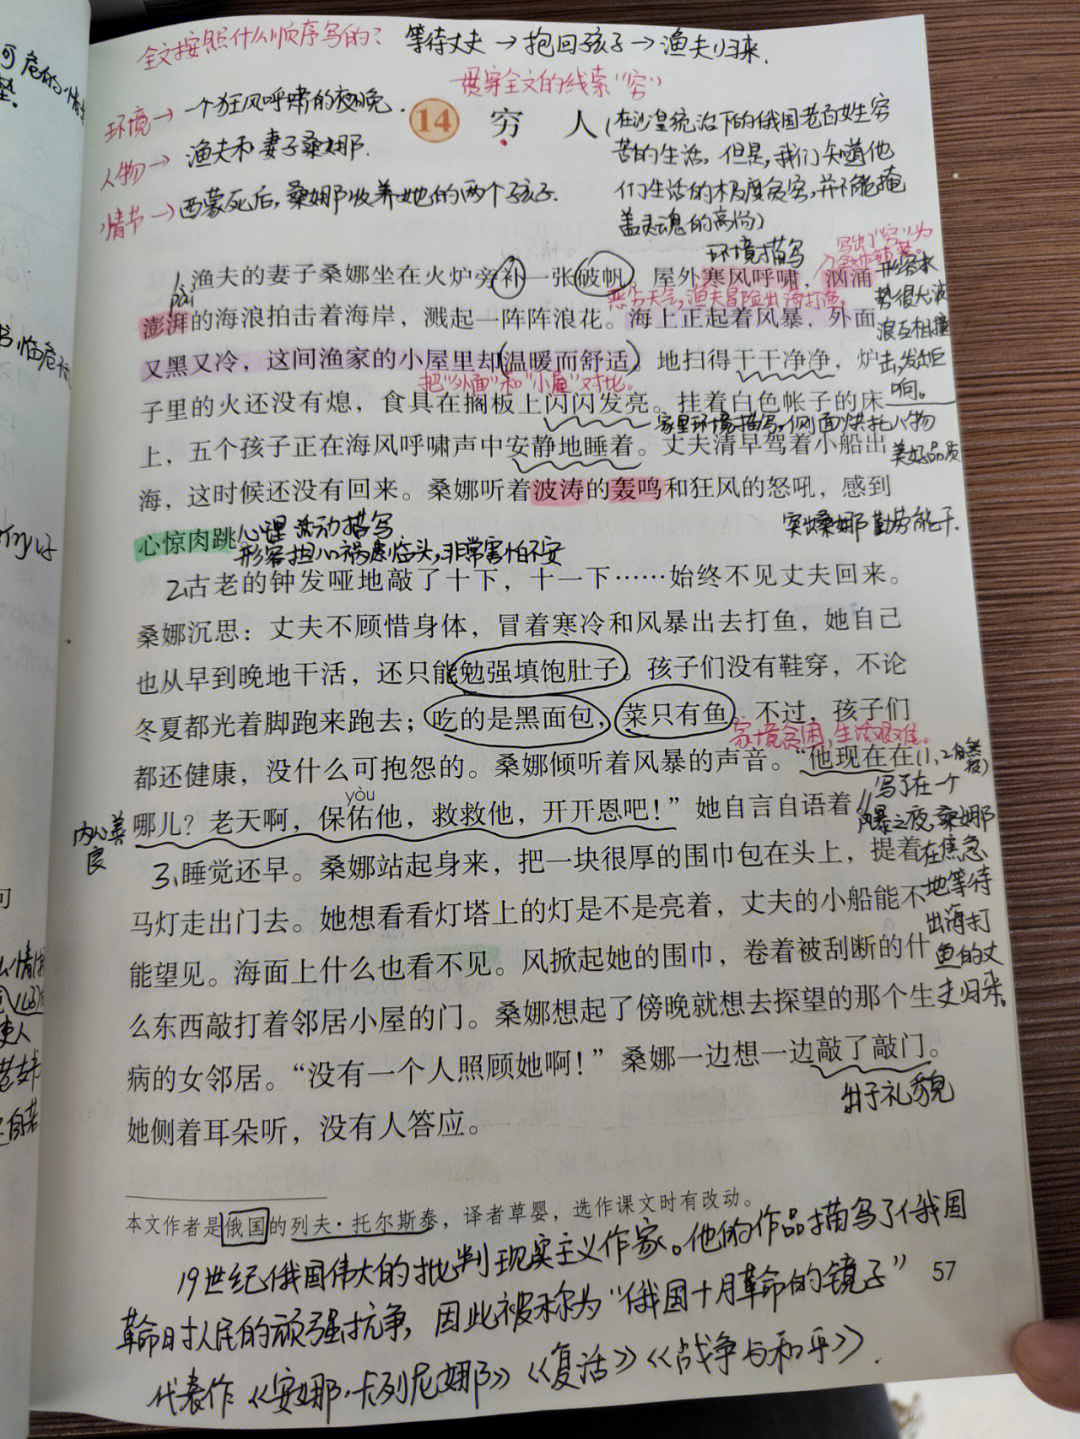 全文按照什么顺序写的？ 等待丈夫→抱回孩子→渔夫归来.
贯穿全文的线索“穷”
环境→ 一个狂风呼啸的夜晚.
人物→ 渔夫和妻子桑娜.
情节→ 西蒙死后，桑娜收养她的两个孩子.
14 穷 人
(在沙皇统治下的俄国老百姓穷
苦的生活，但是，我们知道他
们生活的极度贫穷，并不能掩
盖灵魂的高尚)
环境描写
1、渔夫的妻子桑娜坐在火炉旁补一张破帆。屋外寒风呼啸，汹涌
恶劣天气，渔夫冒险出海打鱼，
pài
澎湃的海浪拍击着海岸，溅起一阵阵浪花。海上正起着风暴，外面
形容水
势很大，波
浪互相撞
击，发出巨
响。
又黑又冷，这间渔家的小屋里却温暖而舒适。地扫得干干净净，炉
把“外面”和“小屋”对比。
子里的火还没有熄，食具在搁板上闪闪发亮。挂着白色帐子的床
家里环境描写，侧面烘托人物
美好品质
上，五个孩子正在海风呼啸声中安静地睡着。丈夫清早驾着小船出
海，这时候还没有回来。桑娜听着波涛的轰鸣和狂风的怒吼，感到
突出桑娜勤劳能干.
心惊肉跳
心理活动描写
形容担心祸患临头，非常害怕不安
2、古老的钟发哑地敲了十下，十一下……始终不见丈夫回来。
桑娜沉思：丈夫不顾惜身体，冒着寒冷和风暴出去打鱼，她自己
也从早到晚地干活，还只能勉强填饱肚子。孩子们没有鞋穿，不论
冬夏都光着脚跑来跑去；吃的是黑面包，菜只有鱼。不过，孩子们
家境贫困，生活艰难。
都还健康，没什么可抱怨的。桑娜倾听着风暴的声音。“他现在在
yòu
哪儿？老天啊，保佑他，救救他，开开恩吧！”她自言自语着。
内心善
良
写了在一个
风暴之夜，桑娜
在焦急
地等待
出海打
鱼的丈
夫归来。
3、睡觉还早。桑娜站起身来，把一块很厚的围巾包在头上，提着
马灯走出门去。她想看看灯塔上的灯是不是亮着，丈夫的小船能不
能望见。海面上什么也看不见。风掀起她的围巾，卷着被刮断的什
么东西敲打着邻居小屋的门。桑娜想起了傍晚就想去探望的那个生
病的女邻居。“没有一个人照顾她啊！”桑娜一边想一边敲了敲门。
出于礼貌
她侧着耳朵听，没有人答应。
本文作者是俄国的列夫·托尔斯泰，译者草婴，选作课文时有改动。
19世纪俄国伟大的批判现实主义作家。他的作品描写了俄国
57
革命时人民的顽强抗争，因此被称为“俄国十月革命的镜子”
代表作《安娜·卡列尼娜》《复活》《战争与和平》.